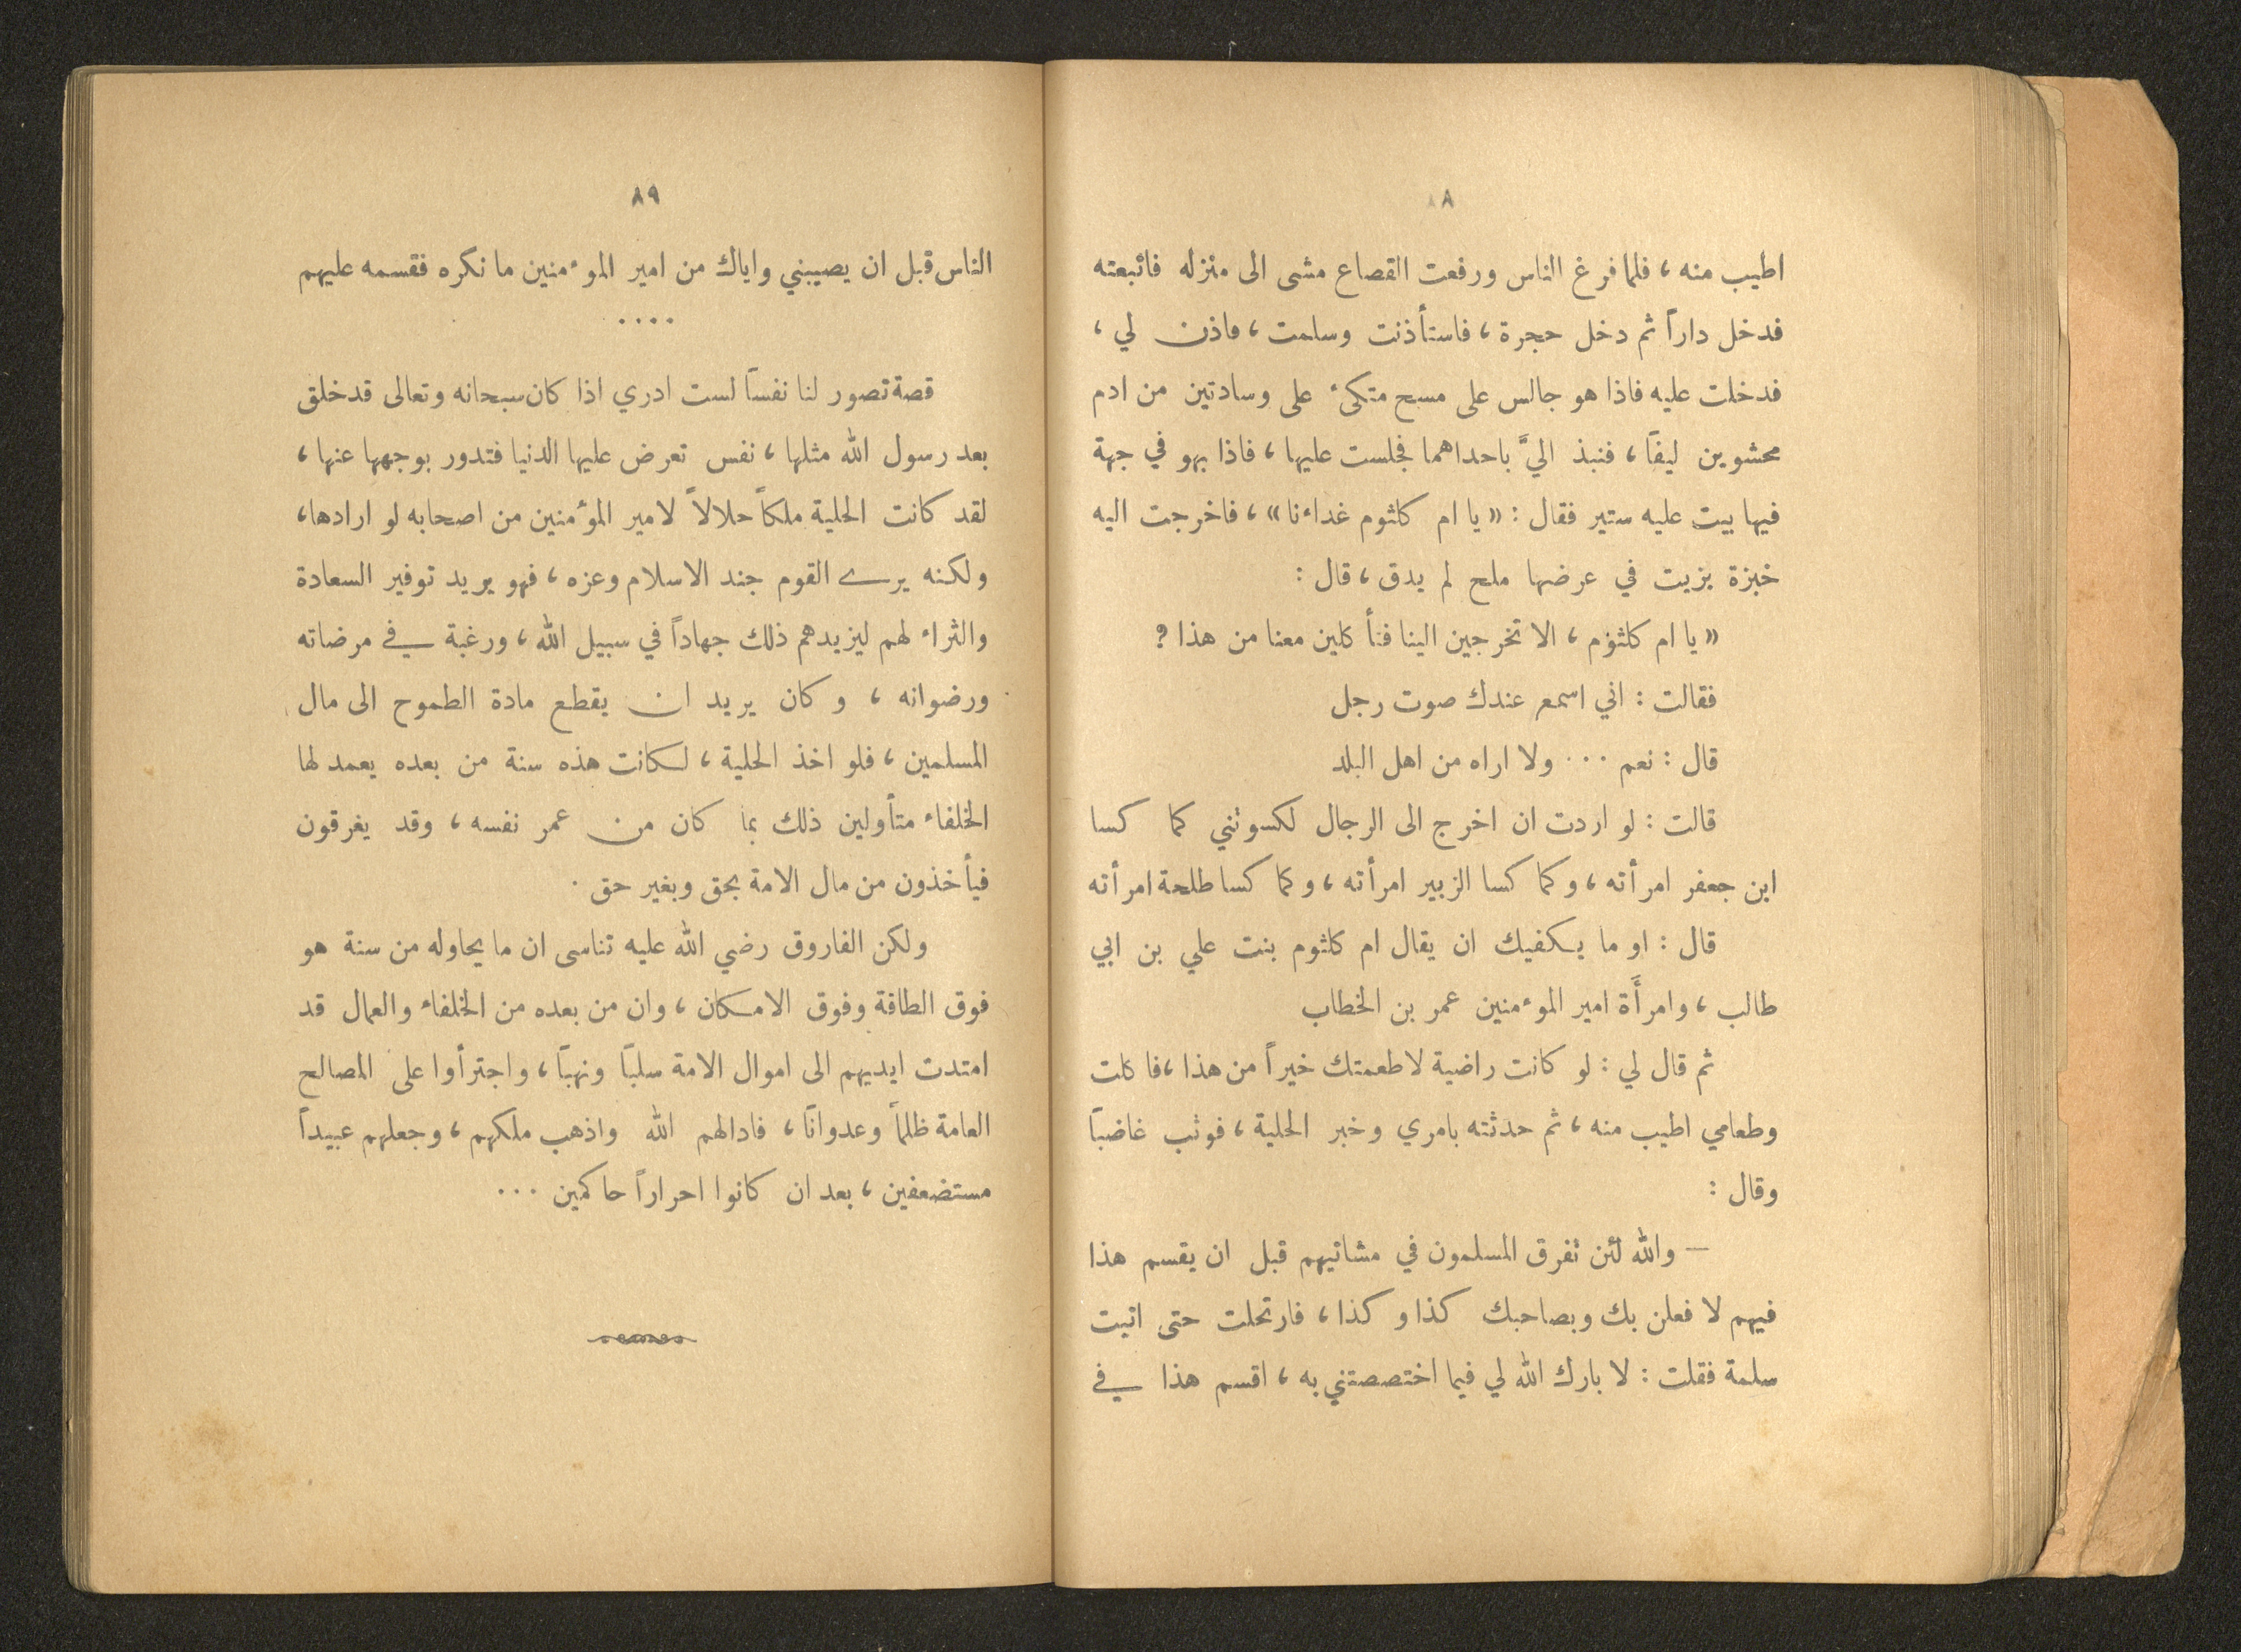 ٨٨
اطيب منه ، فلما فرغ الناس ورفعت القصاع مشى الى منزله فاتبعته
فدخل داراً ثم دخل حجرة ، فاستأذنت وسلمت ، فاذن لي ،
فدخلت عليه فاذا هو جالس على مسح متكىء على وسادتين من ادم
محشوين ليفاً ، فنبذ اليَّ باحداهما فجلست عليها ، فاذا بهو في جهة
فيها بيت عليه ستير فقال : « يا ام كلثوم غداءنا » ، فاخرجت اليه
خبزة بزيت في عرضها ملح لم يدق ، قال :
« يا ام كلثوم ، الا تخرجين الينا فتأكلين معنا من هذا ؟
فقالت : اني اسمع عندك صوت رجل
قال : نعم ... ولا اراه من اهل البلد
قالت : لو اردت ان اخرج الى الرجال لكسوتني كما كسا
ابن جعفر امرأته ، وكما كسا الزبير امرأته ، وكما كسا طلحة امرأته
قال : او ما يكفيك ان يقال ام كلثوم بنت علي بن ابي
طالب ، وامرأَة امير الموءمنين عمر بن الخطاب
ثم قال لي : لو كانت راضية لاطعمتك خيراً من هذا ، فاكلت
وطعامي اطيب منه ، ثم حدثته بامري وخبر الحلية ، فوثب غاضباً
وقال :
— والله لئن تفرق المسلمون في مشاتيهم قبل ان يقسم هذا
فيهم لا فعلن بك وبصاحبك كذا وكذا ، فارتحلت حتى اتيت
سلمة فقلت : لا بارك الله لي فيما اختصصتني به ، اقسم هذا في
٨٩
الناس قبل ان يصيبني واياك من امير الموءمنين ما نكره فقسمه عليهم
....
قصة تصور لنا نفساً لست ادري اذا كان سبحانه وتعالى قد خلق
بعد رسول الله مثلها ، نفس تعرض عليها الدنيا فتدور بوجهها عنها ،
لقد كانت الحلية ملكاً حلالاً لامير المؤمنين من اصحابه لو ارادها ،
ولكنه يرى القوم جند الاسلام وعزه ، فهو يريد توفير السعادة
والثراء لهم ليزيدهم ذلك جهاداً في سبيل الله ، ورغبة في مرضاته
ورضوانه ، وكان يريد ان يقطع مادة الطموح الى مال
المسلمين ، فلو اخذ الحلية ، لكانت هذه سنة من بعده يعمد لها
الخلفاء متأولين ذلك بما كان من عمر نفسه ، وقد يغرقون
فيأخذون من مال الامة بحق وبغير حق .
ولكن الفاروق رضي الله عليه تناسى ان ما يحاوله من سنة هو
فوق الطاقة وفوق الامكان ، وان من بعده من الخلفاء والعمال قد
امتدت ايديهم الى اموال الامة سلباً ونهباً ، واجترأوا على المصالح
العامة ظلماً وعدواناً ، فادالهم الله واذهب ملكهم ، وجعلهم عبيداً
مستضعفين ، بعد ان كانوا احراراً حاكمين ...